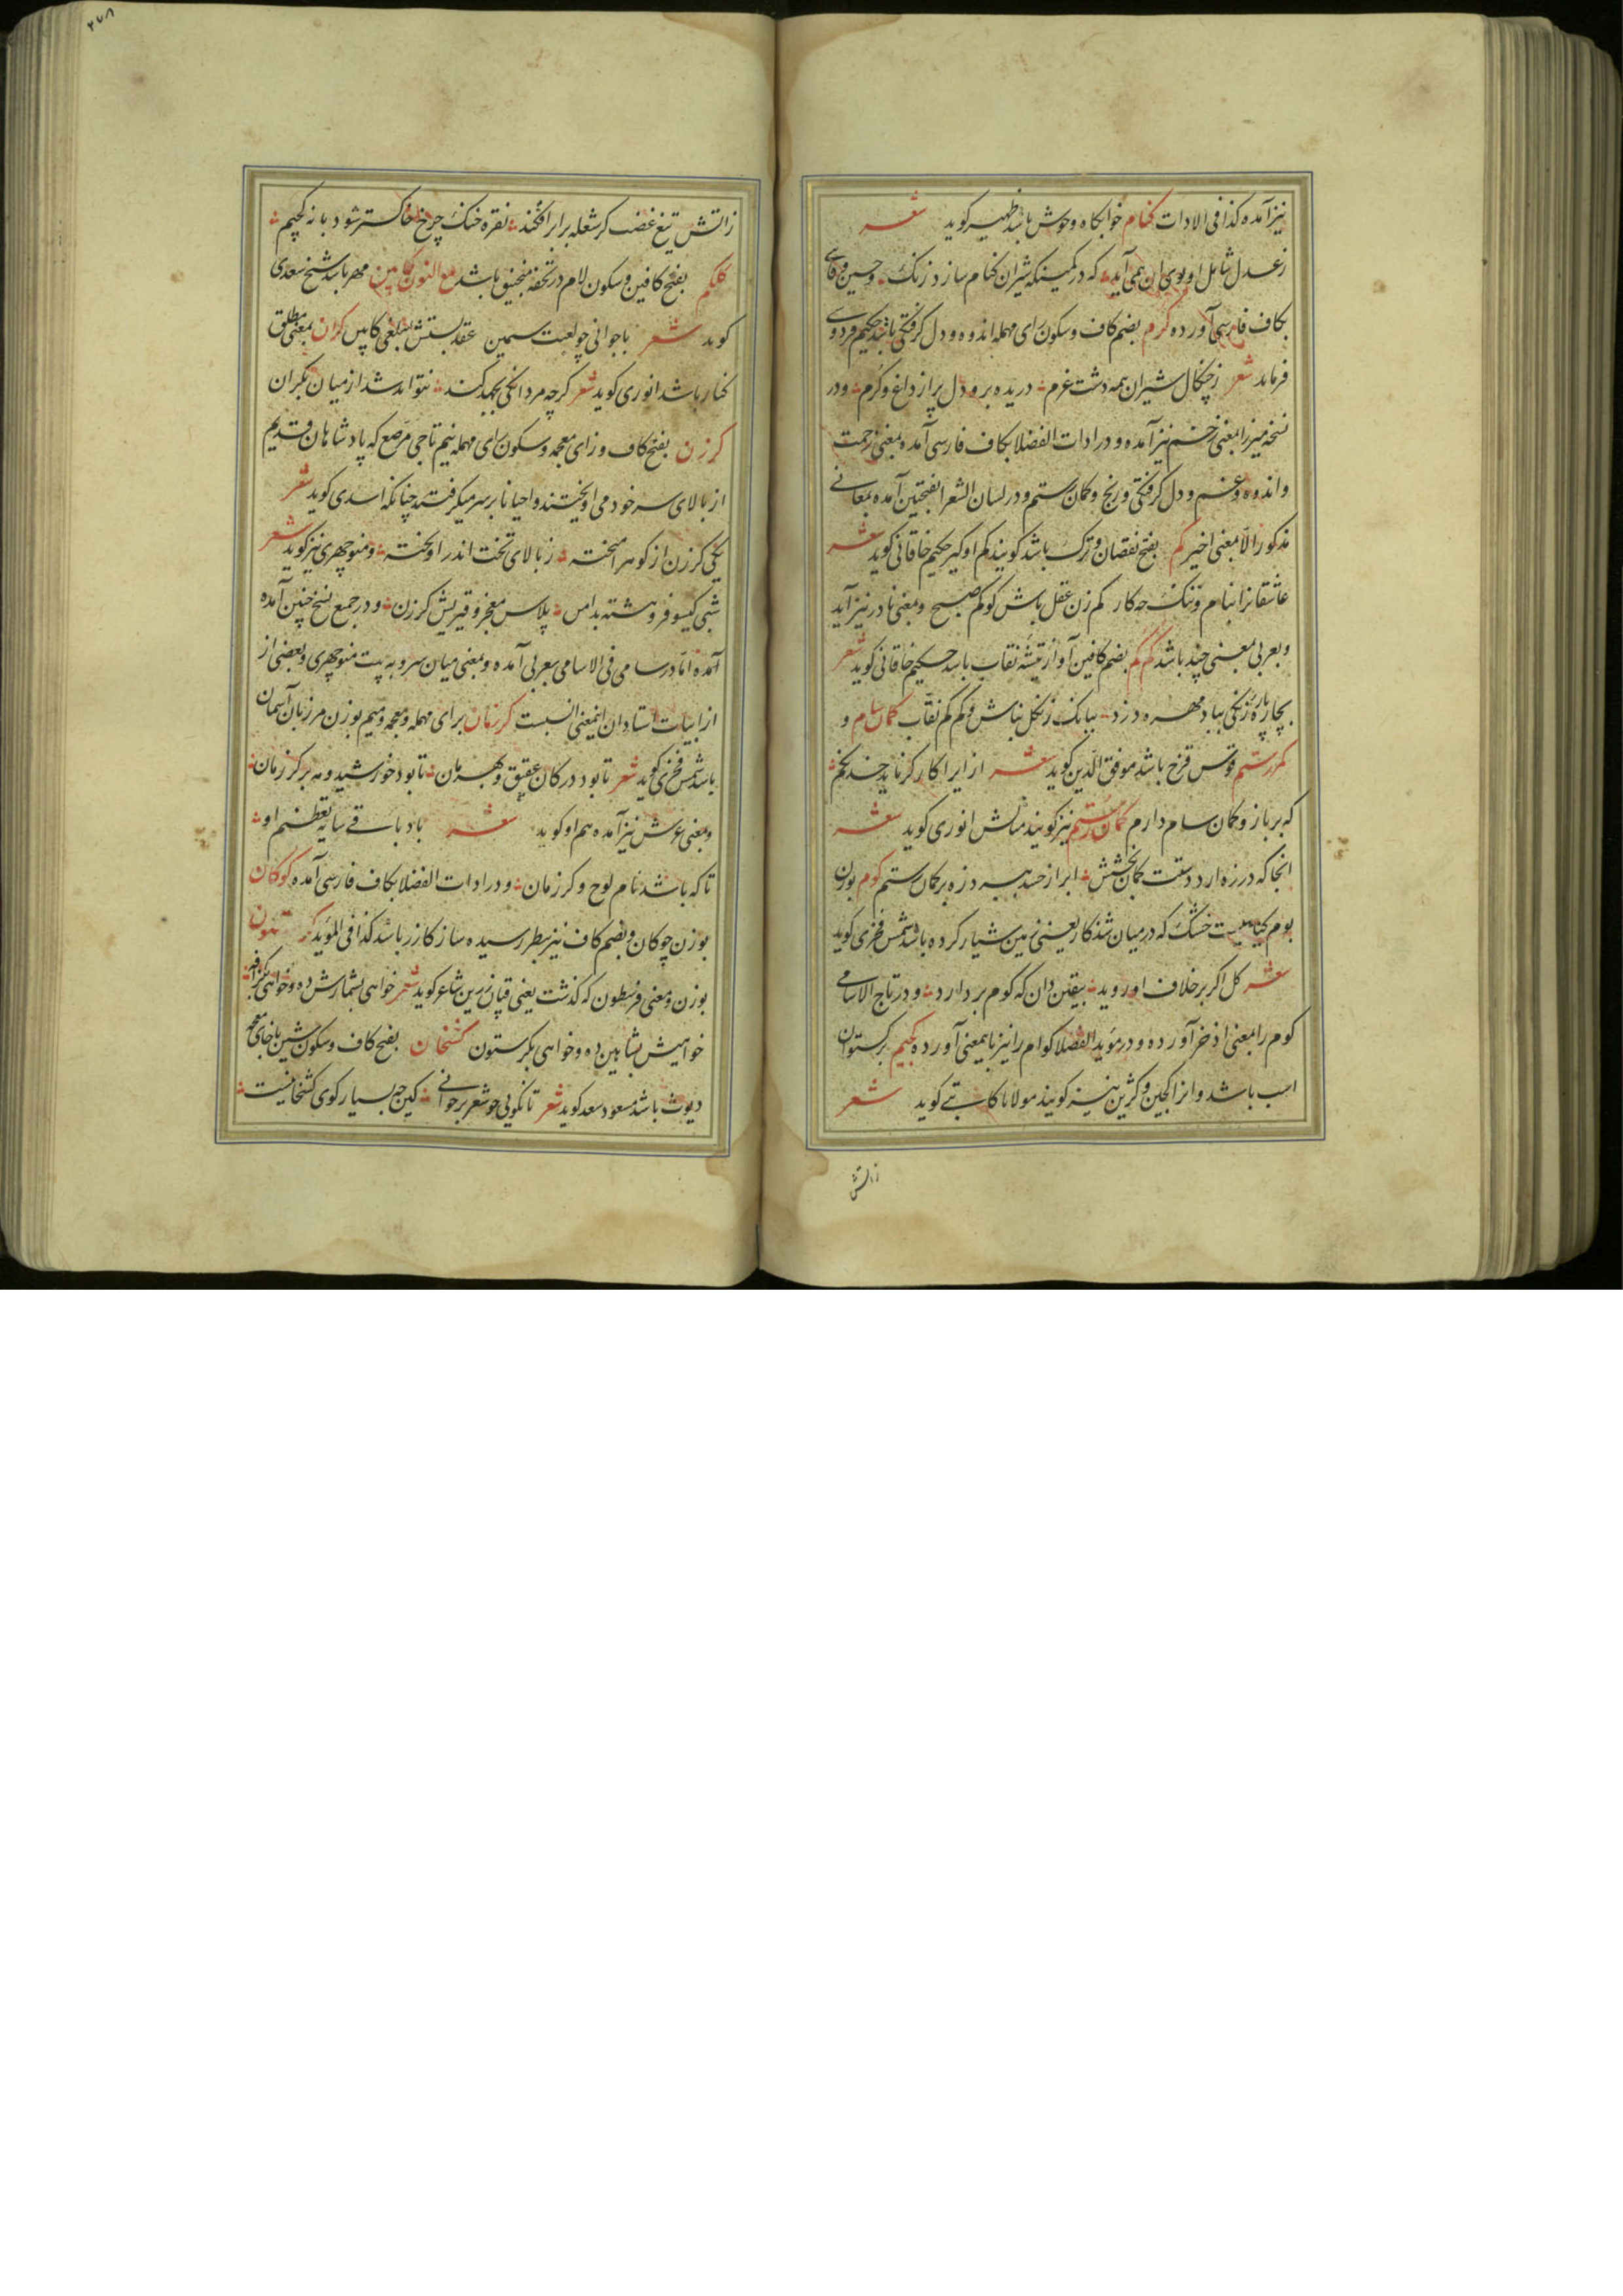 نیز آمده کذا فی الادات کنام خوابکاه وحوش باشد ظهیر کوید شعر
زعدل شامل او بوی ان همی آید که در کمینکه شیران کنام سازد رنک و حسین وفائی
بکاف فارسی آورده کرم بضم کاف و سکون رای مهمله اندوه و دل کرفتکی باشد حکیم فردوسی
فرماید شعر زچنکال شیران همه دشت غرم دریده برو دل پر از داغ و کرم و در
نسخه میرزا بمعنی زخم نیز آمده و در ادات الفضلا بکاف فارسی آمده بمعنی زحمت
و اندوه و غم و دل کرفتکی و رنج و کمان رستم و در لسان الشعرا بفتحتین آمده بمعانی
مذکور الا بمعنی اخیر کم بفتح نقصان و ترک باشد کویند کم او کیر حکیم خاقانی کوید شعر
عاشقانرا بنام و ننک چه کار کم زن عقل باش کو کم صبح و بمعنی نادر نیز آید
و بعربی بمعنی چند باشد کم کم بضم کافین آواز تیشه نقاب باشد حکیم خاقانی کوید شعر
بچار پاره زنکی بباد مهره دزد ببانک زنکل نباش و کم کم نقاب کمان سام و
کمر رستم قوس قزح باشد موفق الدین کوید شعر از ایرا کارکر ناید خدنکم
که بر بازو کمان سام دارم کمان رستم نیز کویند مثالش انوری کوید شعر
انجا که در زه ارد دستت کمان بخشش ابر از حسد ببرد زه بر کمان رستم کوم بوزن
بوم کیاهیست خشک که در میان شدکار یعنی زمین شیار کرده باشد شمس فخری کوید
شعر کل اکر بر خلاف او روید بیقین دان که کوم بر دارد و در تاج الاسامی
کوم را بمعنی اذخر آورده و در موید الفضلا کوام را نیز باینمعنی آورده کجیم برکستوان
اسب باشد و انرا کجین و کژین نیز کویند مولانا کاتبی کوید شعر
زاتش
۲۷۸
زاتش تیغ غضب کر شعله برابر افکند نقره خنک چرخ خاکستر شود با نه کجیم
کلکم بفتح کافین و سکون لام در تحفه منجنیق باشد مع النون کابین مهر باشد شیخ سعدی
کوید شعر با جوانی چو لعبت سیمین عقد بستش بمبلغی کابین کران بمعنی مطلق
کنار باشد انوری کوید شعر کرچه مردانکی بجهد کند نتواند شد از میان بکران
کرزن بفتح کاف و زای معجمه و سکون رای مهمله نیم تاجی مرصع که پادشاهان قدیم
از بالای سر خود می اویختند و احیانا بر سر میکرفتند چنانکه اسدی کوید شعر
یکی کرزن از کوهر آمیخته ز بالای تخت اندر اویخته و منوچهری نیز کوید شعر
شبی کیسو فروهشته بدامن پلاسین معجر و قیرینش کرزن و در جمع نسخ چنین آمده
آمده اما در سامی فی الاسامی بعربی آمده و بمعنی میان سر و به بیت منوچهری و بعضی از
از ابیات استادان اینمعنی انسبست کرزمان برای مهمله و معجمه و میم بوزن مرزبان آسمان
باشد شمس فخری کوید شعر تا بود در کان عقیق و بهرمان تا بود خورشید و مه بر کرزمان
و بمعنی عرش نیز آمده هم او کوید شعر باد باقی سایه تعظیم او
تا که باشد نام لوح و کرزمان و در ادات الفضلا بکاف فارسی آمده کوکان
بوزن چوکان و بضم کاف نیز بنظر رسیده ساز کازر باشد کذا فی الموید کرستون
بوزن و معنی فرسطون که کذشت یعنی قپان زرین شاعر کوید شعر خواهی بشمارش ده و خواهی بکزافه
خواهیش بشاهین ده و خواهی بکرستون کشخان بفتح کاف و سکون شین با خای معجمه
دیوث باشد مسعود سعد کوید شعر تا نکویی چو شعر برخوانی کین چه بسیار کوی کشخانیست